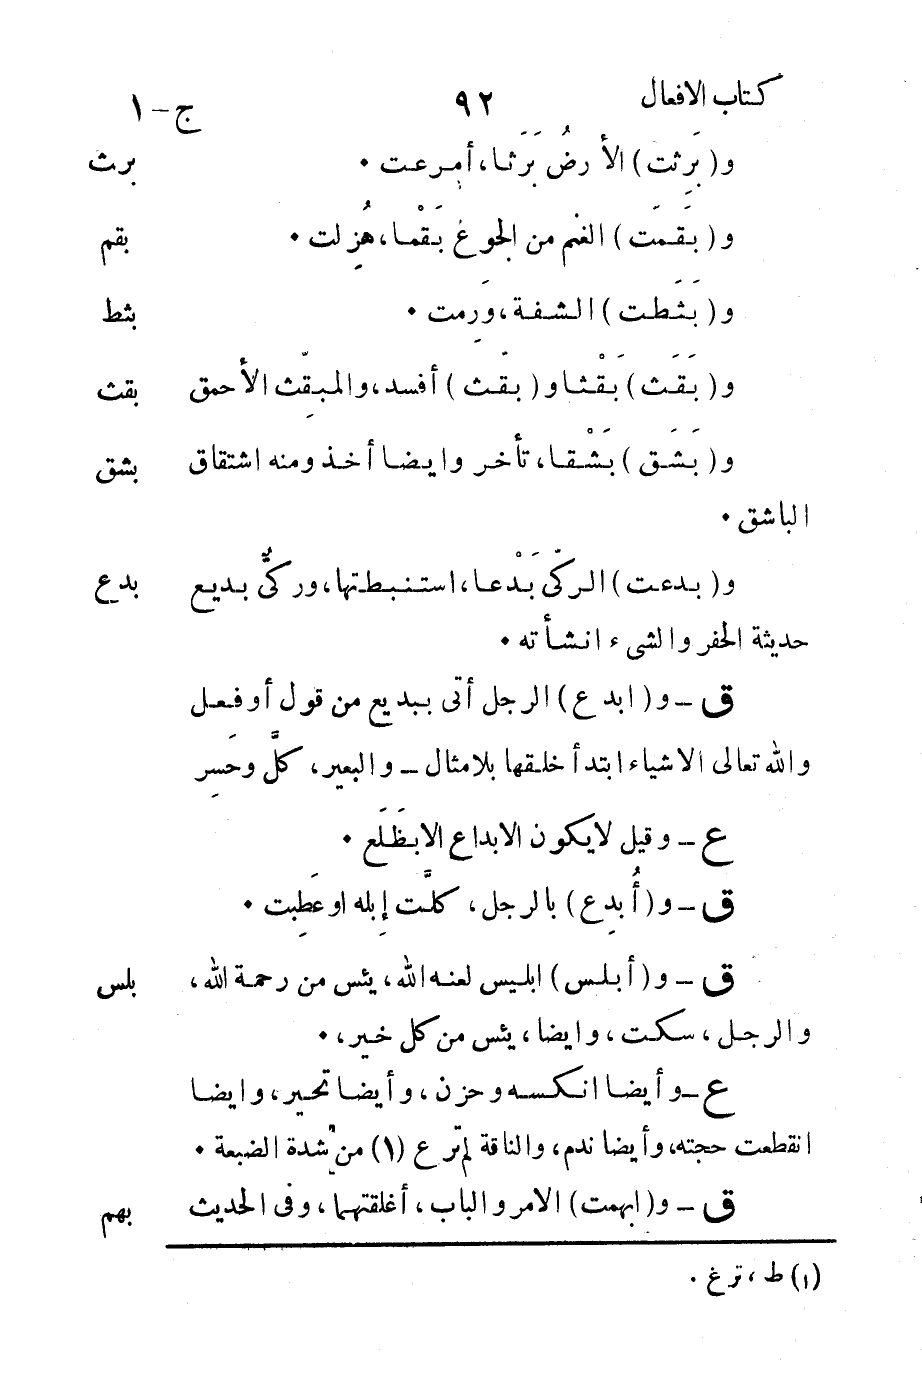 كتاب الافعال ٩٢ ج – ١
و (بَرِثت) الأرضُ بَرَثا، أمرعت ٠ برث
و (بَقَمَت) الغنم من الجوعِ بَقْما، هُزِلت ٠ بقم
و (بَثَطت) الشفة، وَرِمت ٠ بثط
و (بَقَث) بَقْثا و (بقّث) أفسد، والمبقِّث الأحمق بقث
و (بَشَق) بَشْقا، تأخر وايضا أخذ ومنه اشتقاق بشق
الباشق ٠
و (بدعت) الركيّ بَدْعا، استنبطتها، وركيٌّ بديع بدع
حديثة الحفر والشىء انشأته ٠
ق – و (ابدع) الرجل أتى ببديع من قول أو فعل
والله تعالى الاشياء ابتدأ خلقها بلا مثال – والبعير، كلَّ وحَسِر
ع – وقيل لايكون الابداع الا بظَلَع ٠
ق – و (أُبدِع) بالرجل، كلَّت إبله او عَطِبت ٠
ق – و (أبلس) ابليس لعنه الله، يئس من رحمة الله، بلس
والرجل، سكت، وايضا، يئس من كل خير، ٠
ع – وأيضا انكسه وحزن، وأيضا تحير، وايضا
انقطعت حجته، وأيضا ندم، والناقة لم ترع (١) من شدة الضبعة ٠
ق – و (ابهمت) الامر والباب، أغلقتهما، وفى الحديث بهم
(١) ط، ترغ ٠